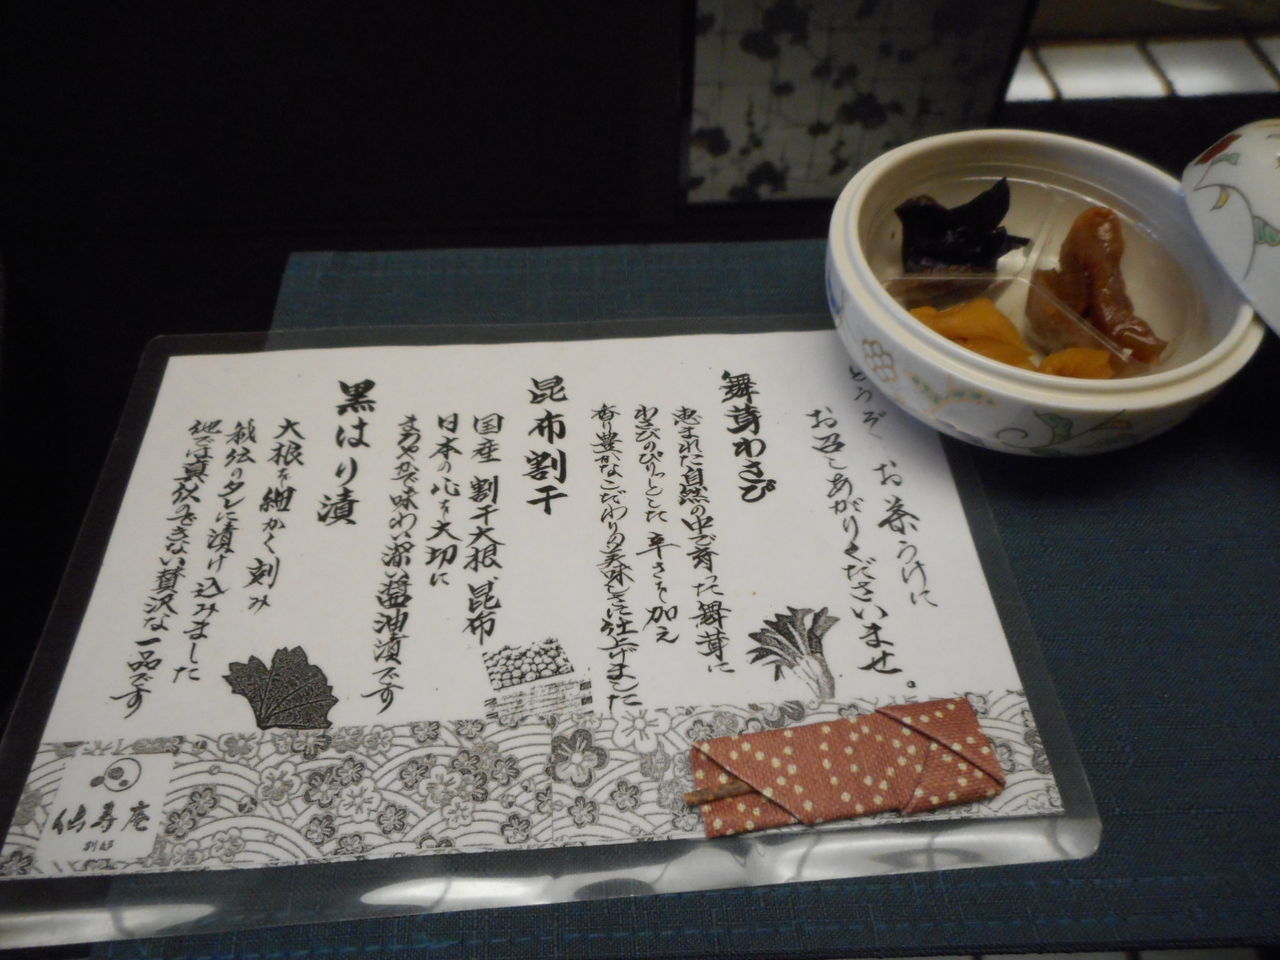 どうぞ お茶うけに
お召しあがりくださいませ。
舞茸わさび
恵まれた自然の中で育った舞茸に
わさびのぴりっとした辛さを加え
香り豊かなこだわりの美味しさに仕上げました
昆布割干
国産 割干大根 昆布
日本の心を大切に
まろやかで味わい深い醤油漬です
黒はり漬
大根を細かく刻み
秘伝のタレに漬け込みました
他では真似のできない贅沢な一品です
仙寿庵
別邸